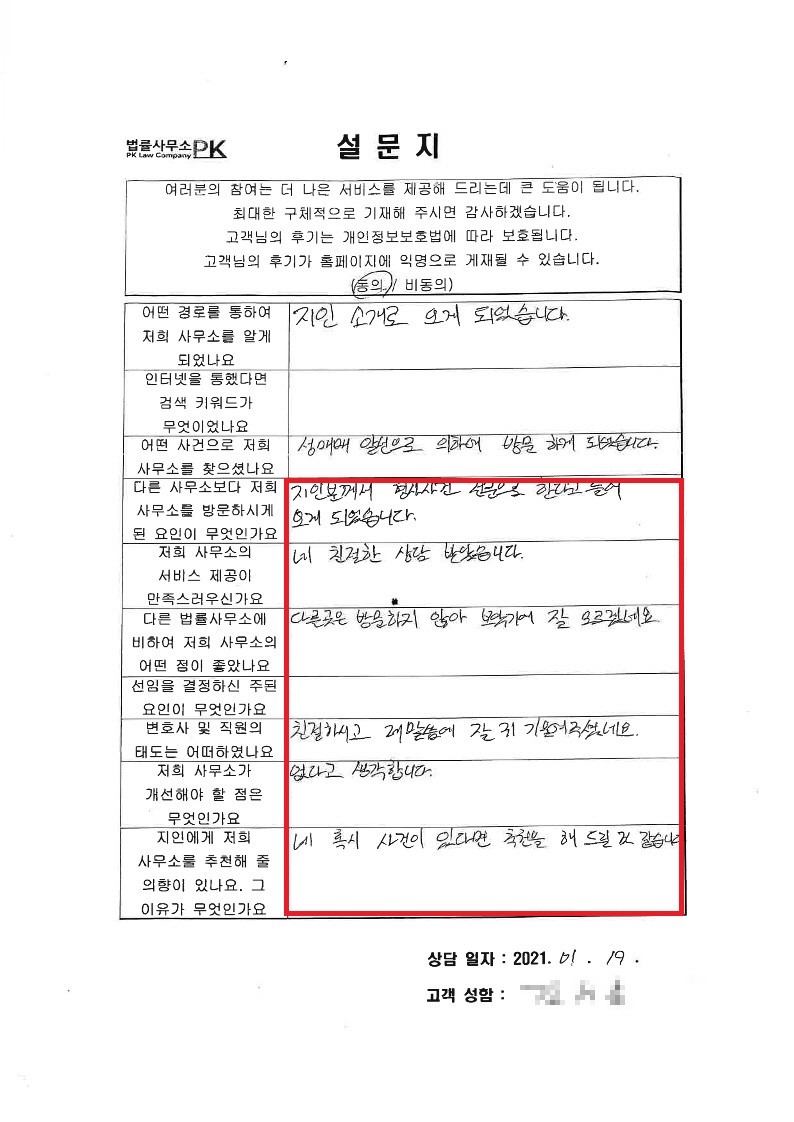 법률사무소 PK
PK Law Company
설 문 지
여러분의 참여는 더 나은 서비스를 제공해 드리는데 큰 도움이 됩니다.
최대한 구체적으로 기재해 주시면 감사하겠습니다.
고객님의 후기는 개인정보보호법에 따라 보호됩니다.
고객님의 후기가 홈페이지에 익명으로 게재될 수 있습니다.
(동의 / 비동의)
어떤 경로를 통하여
저희 사무소를 알게
되었나요
지인 소개로 오게 되었습니다.
인터넷을 통했다면
검색 키워드가
무엇이었나요
어떤 사건으로 저희
사무소를 찾으셨나요
성매매 알선으로 의하여 방문 하게 되었습니다.
다른 사무소보다 저희
사무소를 방문하시게
된 요인이 무엇인가요
지인분께서 형사사건 전문으로 한다고 들어
오게 되었습니다.
저희 사무소의
서비스 제공이
만족스러우신가요
네 친절한 상담 받았습니다.
다른 법률사무소에
비하여 저희 사무소의
어떤 점이 좋았나요
다른곳은 방문하지 않아 보았기에 잘 모르겠네요
선임을 결정하신 주된
요인이 무엇인가요
변호사 및 직원의
태도는 어떠하였나요
친절하시고 제말씀에 잘 귀 기울여주셨네요.
저희 사무소가
개선해야 할 점은
무엇인가요
없다고 생각합니다.
지인에게 저희
사무소를 추천해 줄
의향이 있나요. 그
이유가 무엇인가요
네 혹시 사건이 있다면 추천을 해 드릴 것 같습니다
상담 일자 : 2021. 01 . 19 .
고객 성함 :